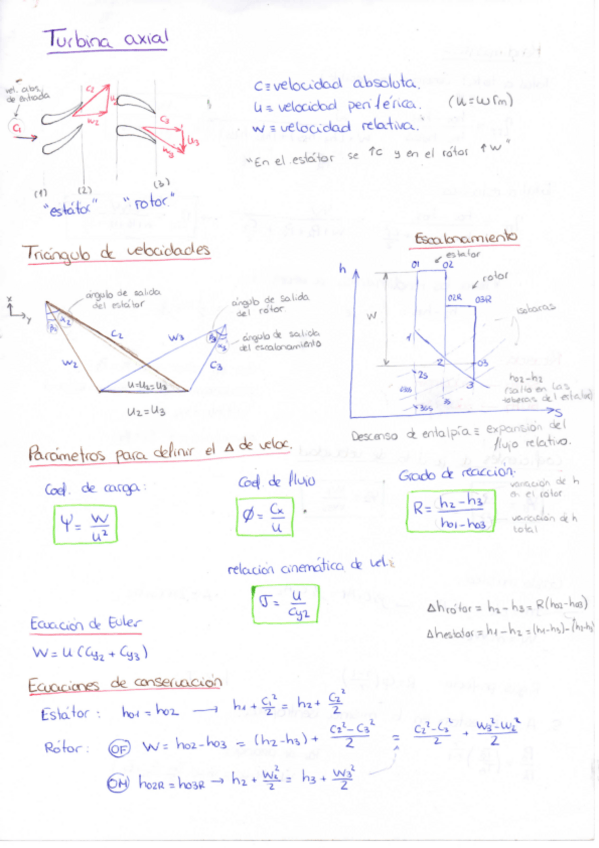 Turbina axial
vel. abs.
de entrada
C1
C2
W2
U
C3
W3
U3
(1) (2) (3)
"estátor" "rotor"
C≡velocidad absoluta.
U≡velocidad periférica. (U=ωrm)
W≡velocidad relativa.
"En el estátor se ↑C y en el rótor ↑W"
Triángulo de velocidades
x
y
ángulo de salida
del estátor
ángulo de salida
del rotor
ángulo de salida
del escalonamiento
α2
β2
C2
W3
W2
C3
U=U2=U3
U2=U3
Escalonamiento
estator
rotor
h
01 02
02R 03R
W
isobaras
1
2
03
2s
3
3s
3ss
S
h02-h2
(salto en las
toberas del estator)
Descenso de entalpía ≡ expansión del
flujo relativo.
Parámetros para definir el Δ de veloc.
Coef. de carga:
Ψ = W/U²
Coef. de flujo
Ø = Cx/U
Grado de reacción:
R = (h2-h3)/(h01-h03)
variación de h
en el rotor
variación de h
total
relación cinemática de vel.:
σ = U/Cy2
Ecuación de Euler
W=U(Cy2+Cy3)
Δhrótor = h2-h3 = R(h02-h03)
Δhestator = h1-h2 = (h1-h3)-(h2-h3)
Ecuaciones de conservación
Estátor: h01=h02 → h1+C1²/2 = h2+C2²/2
Rótor: OF W=h02-h03 = (h2-h3)+(C2²-C3²)/2 = (C2²-C3²)/2 + (W3²-W2²)/2
OM h02R=h03R → h2+W2²/2 = h3+W3²/2